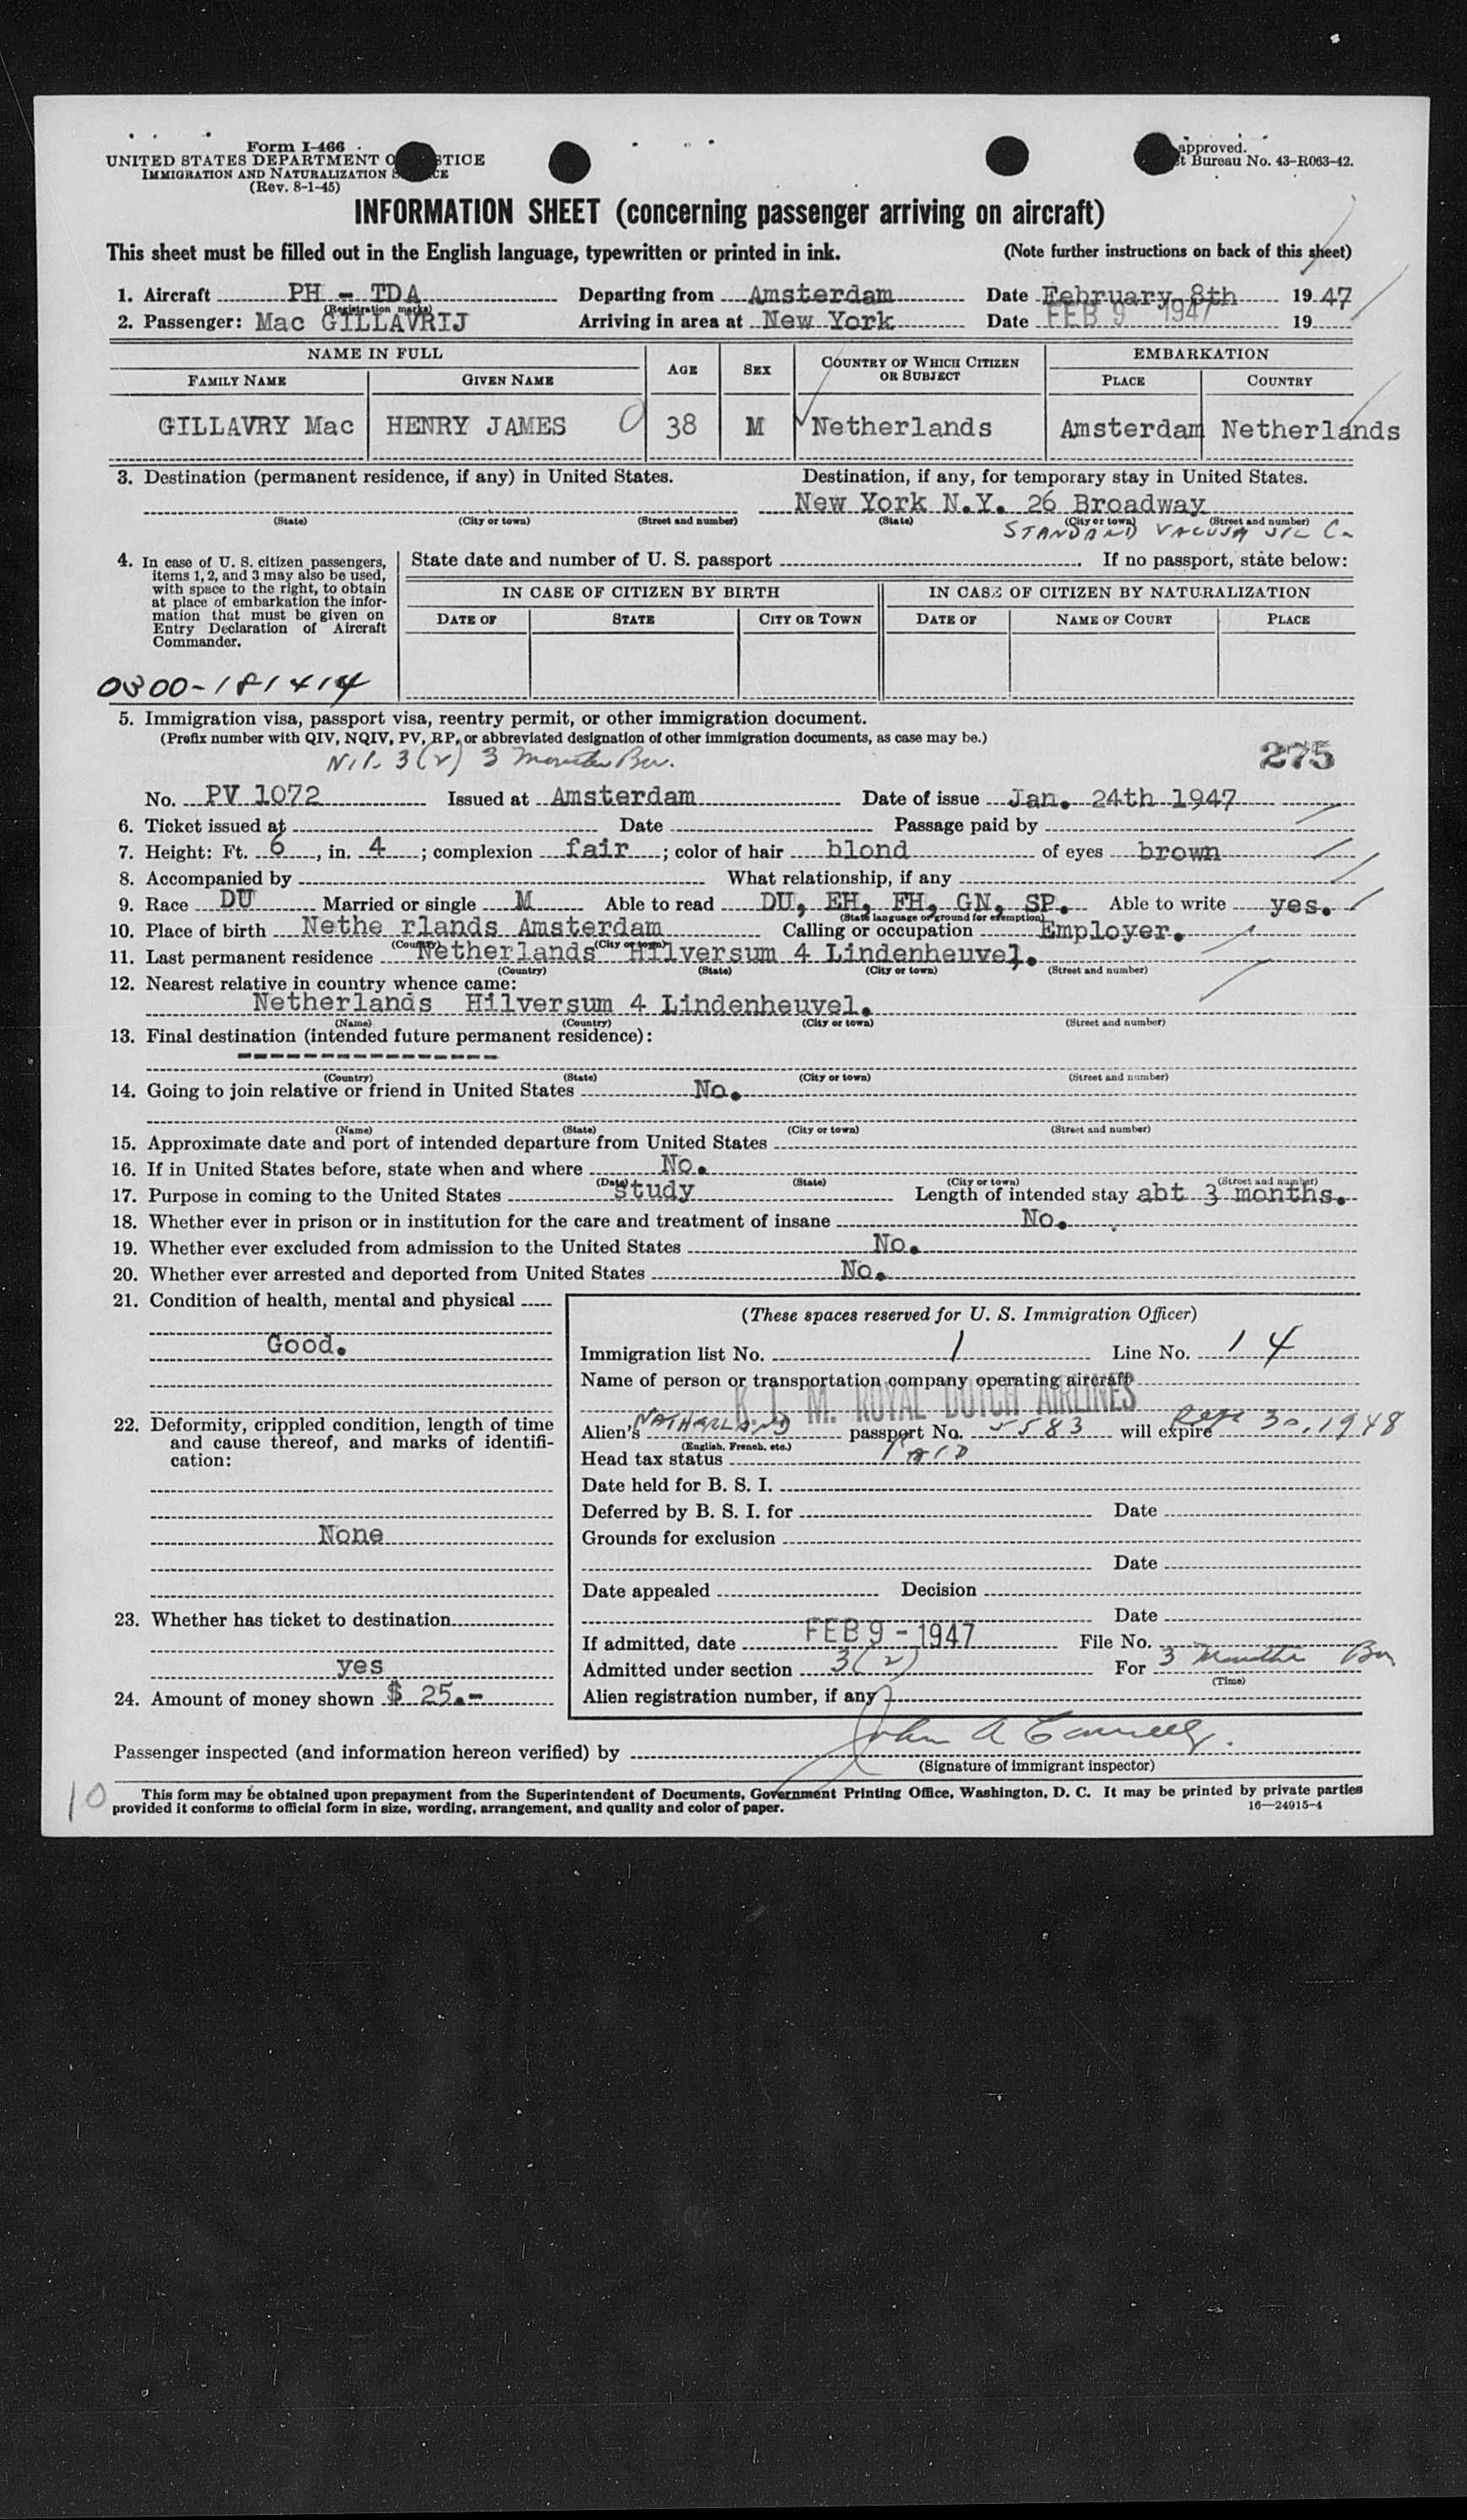 Form I-466
UNITED STATES DEPARTMENT OF JUSTICE
IMMIGRATION AND NATURALIZATION SERVICE
(Rev. 8-1-45)
approved.
Bureau No. 43-R063-42.
INFORMATION SHEET (concerning passenger arriving on aircraft)
This sheet must be filled out in the English language, typewritten or printed in ink. (Note further instructions on back of this sheet)
1. Aircraft PH - TDA Departing from Amsterdam Date February 8th 1947
(Registration marks)
2. Passenger: Mac GILLAVRIJ Arriving in area at New York Date FEB 9 1947 19
NAME IN FULL AGE SEX COUNTRY OF WHICH CITIZEN OR SUBJECT EMBARKATION
FAMILY NAME GIVEN NAME PLACE COUNTRY
GILLAVRY Mac HENRY JAMES 38 M Netherlands Amsterdam Netherlands
3. Destination (permanent residence, if any) in United States. Destination, if any, for temporary stay in United States.
New York N.Y. 26 Broadway
(State) (City or town) (Street and number) (State) (City or town) (Street and number)
STANDARD VACUUM OIL Co
4. In case of U. S. citizen passengers, items 1, 2, and 3 may also be used, with space to the right, to obtain at place of embarkation the information that must be given on Entry Declaration of Aircraft Commander.
State date and number of U. S. passport If no passport, state below:
IN CASE OF CITIZEN BY BIRTH IN CASE OF CITIZEN BY NATURALIZATION
DATE OF STATE CITY OR TOWN DATE OF NAME OF COURT PLACE
0300-181414
5. Immigration visa, passport visa, reentry permit, or other immigration document.
(Prefix number with QIV, NQIV, PV, RP, or abbreviated designation of other immigration documents, as case may be.)
3(2) 3 Months Bus.
275
No. PV 1072 Issued at Amsterdam Date of issue Jan. 24th 1947
6. Ticket issued at Date Passage paid by
7. Height: Ft. 6, in. 4; complexion fair; color of hair blond of eyes brown
8. Accompanied by What relationship, if any
9. Race DU Married or single M Able to read DU, EH, FH, GN, SP. Able to write yes.
(State language or ground for exemption)
10. Place of birth Nethe rlands Amsterdam Calling or occupation Employer.
(Country) (City or town)
11. Last permanent residence Netherlands Hilversum 4 Lindenheuvel.
(Country) (State) (City or town) (Street and number)
12. Nearest relative in country whence came:
Netherlands Hilversum 4 Lindenheuvel.
(Name) (Country) (City or town) (Street and number)
13. Final destination (intended future permanent residence):
----------------
(Country) (State) (City or town) (Street and number)
14. Going to join relative or friend in United States No.
(Name) (State) (City or town) (Street and number)
15. Approximate date and port of intended departure from United States
16. If in United States before, state when and where No.
(Date) (State) (City or town) (Street and number)
17. Purpose in coming to the United States study Length of intended stay abt 3 months.
18. Whether ever in prison or in institution for the care and treatment of insane No.
19. Whether ever excluded from admission to the United States No.
20. Whether ever arrested and deported from United States No.
21. Condition of health, mental and physical
Good.
22. Deformity, crippled condition, length of time and cause thereof, and marks of identification:
None
23. Whether has ticket to destination
yes
24. Amount of money shown $ 25.-
(These spaces reserved for U. S. Immigration Officer)
Immigration list No. 1 Line No. 14
Name of person or transportation company operating aircraft
K. L. M. ROYAL DUTCH AIRLINES
Alien's NATHERLAND passport No. 5583 will expire Sept 30, 1948
(English, French, etc.)
Head tax status PAID
Date held for B. S. I.
Deferred by B. S. I. for Date
Grounds for exclusion
Date
Date appealed Decision
Date
If admitted, date FEB 9 - 1947 File No.
Admitted under section 3(2) For 3 Months Bus
(Time)
Alien registration number, if any
Passenger inspected (and information hereon verified) by John A
(Signature of immigrant inspector)
10
This form may be obtained upon prepayment from the Superintendent of Documents, Government Printing Office, Washington, D. C. It may be printed by private parties
provided it conforms to official form in size, wording, arrangement, and quality and color of paper. 16—24915-4